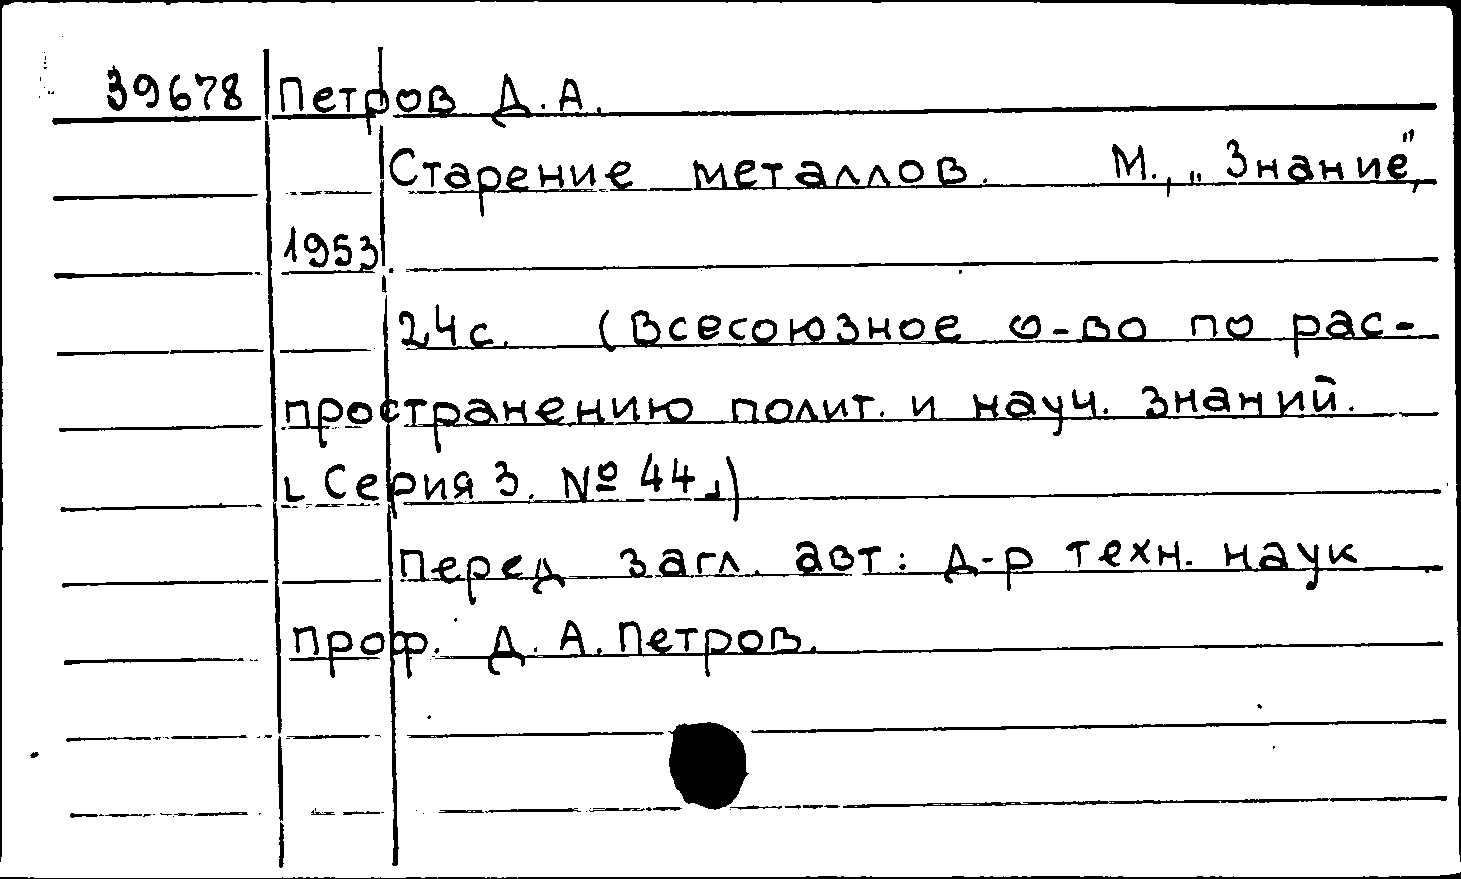 39678 Петров Д.А.
Старение металлов. М., „Знание",
1953.
24с. (Всесоюзное о-во по рас-
пространению полит. и науч. знаний.
[Серия 3. № 44])
Перед загл. авт: д-р техн. наук
проф. Д.А. Петров.